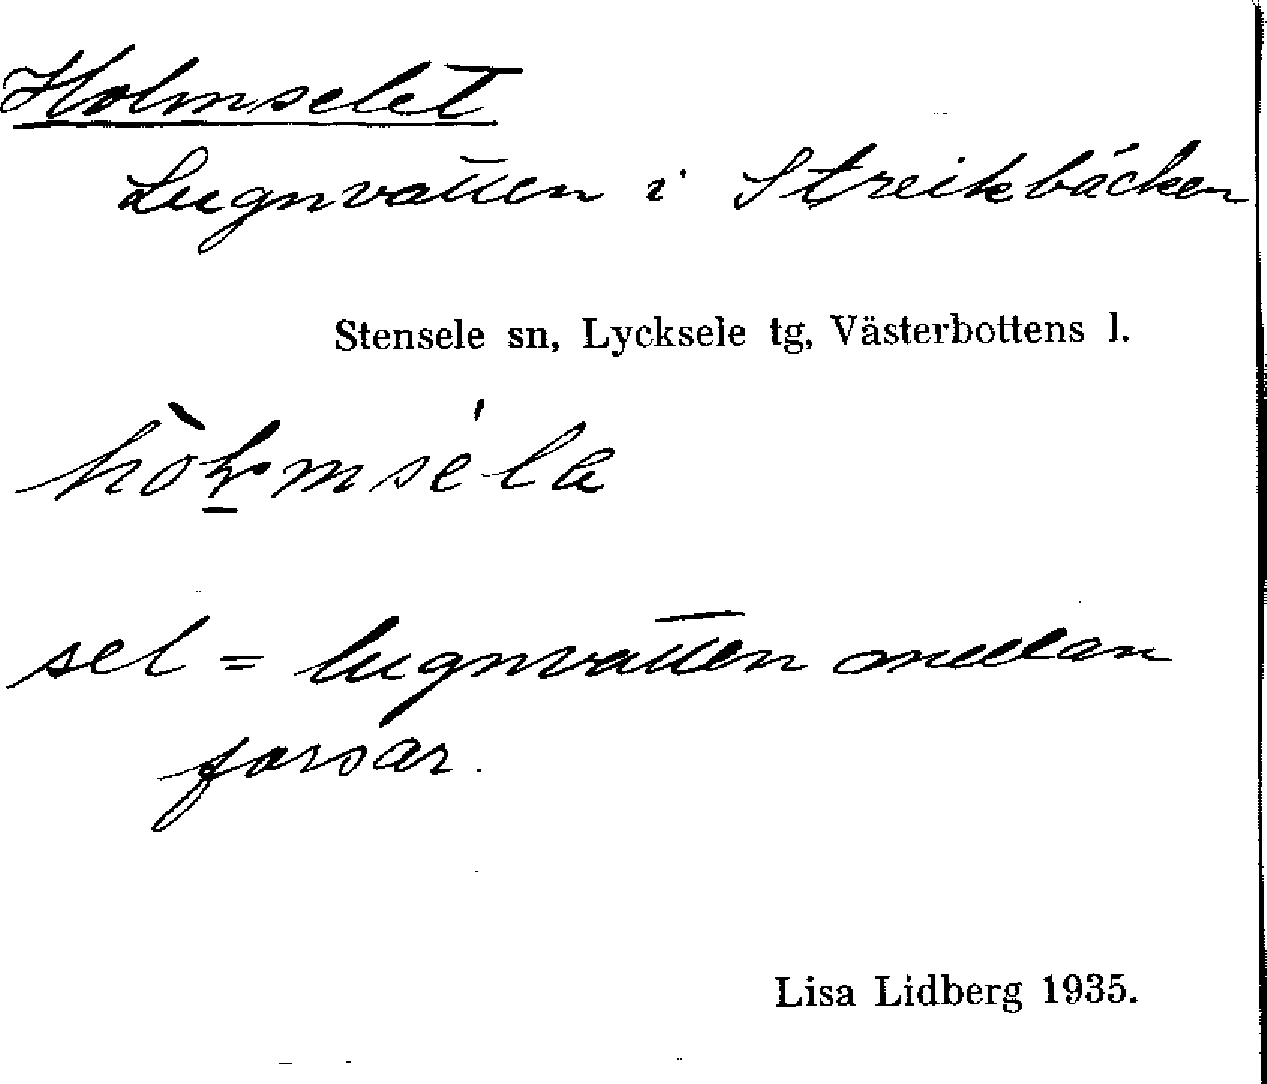 Holmselet
Lugnvatten i Streikbäcken
Stensele sn, Lycksele tg, Västerbottens l.
sel = lugnvatten mellan
forsar.
Lisa Lidberg 1935.